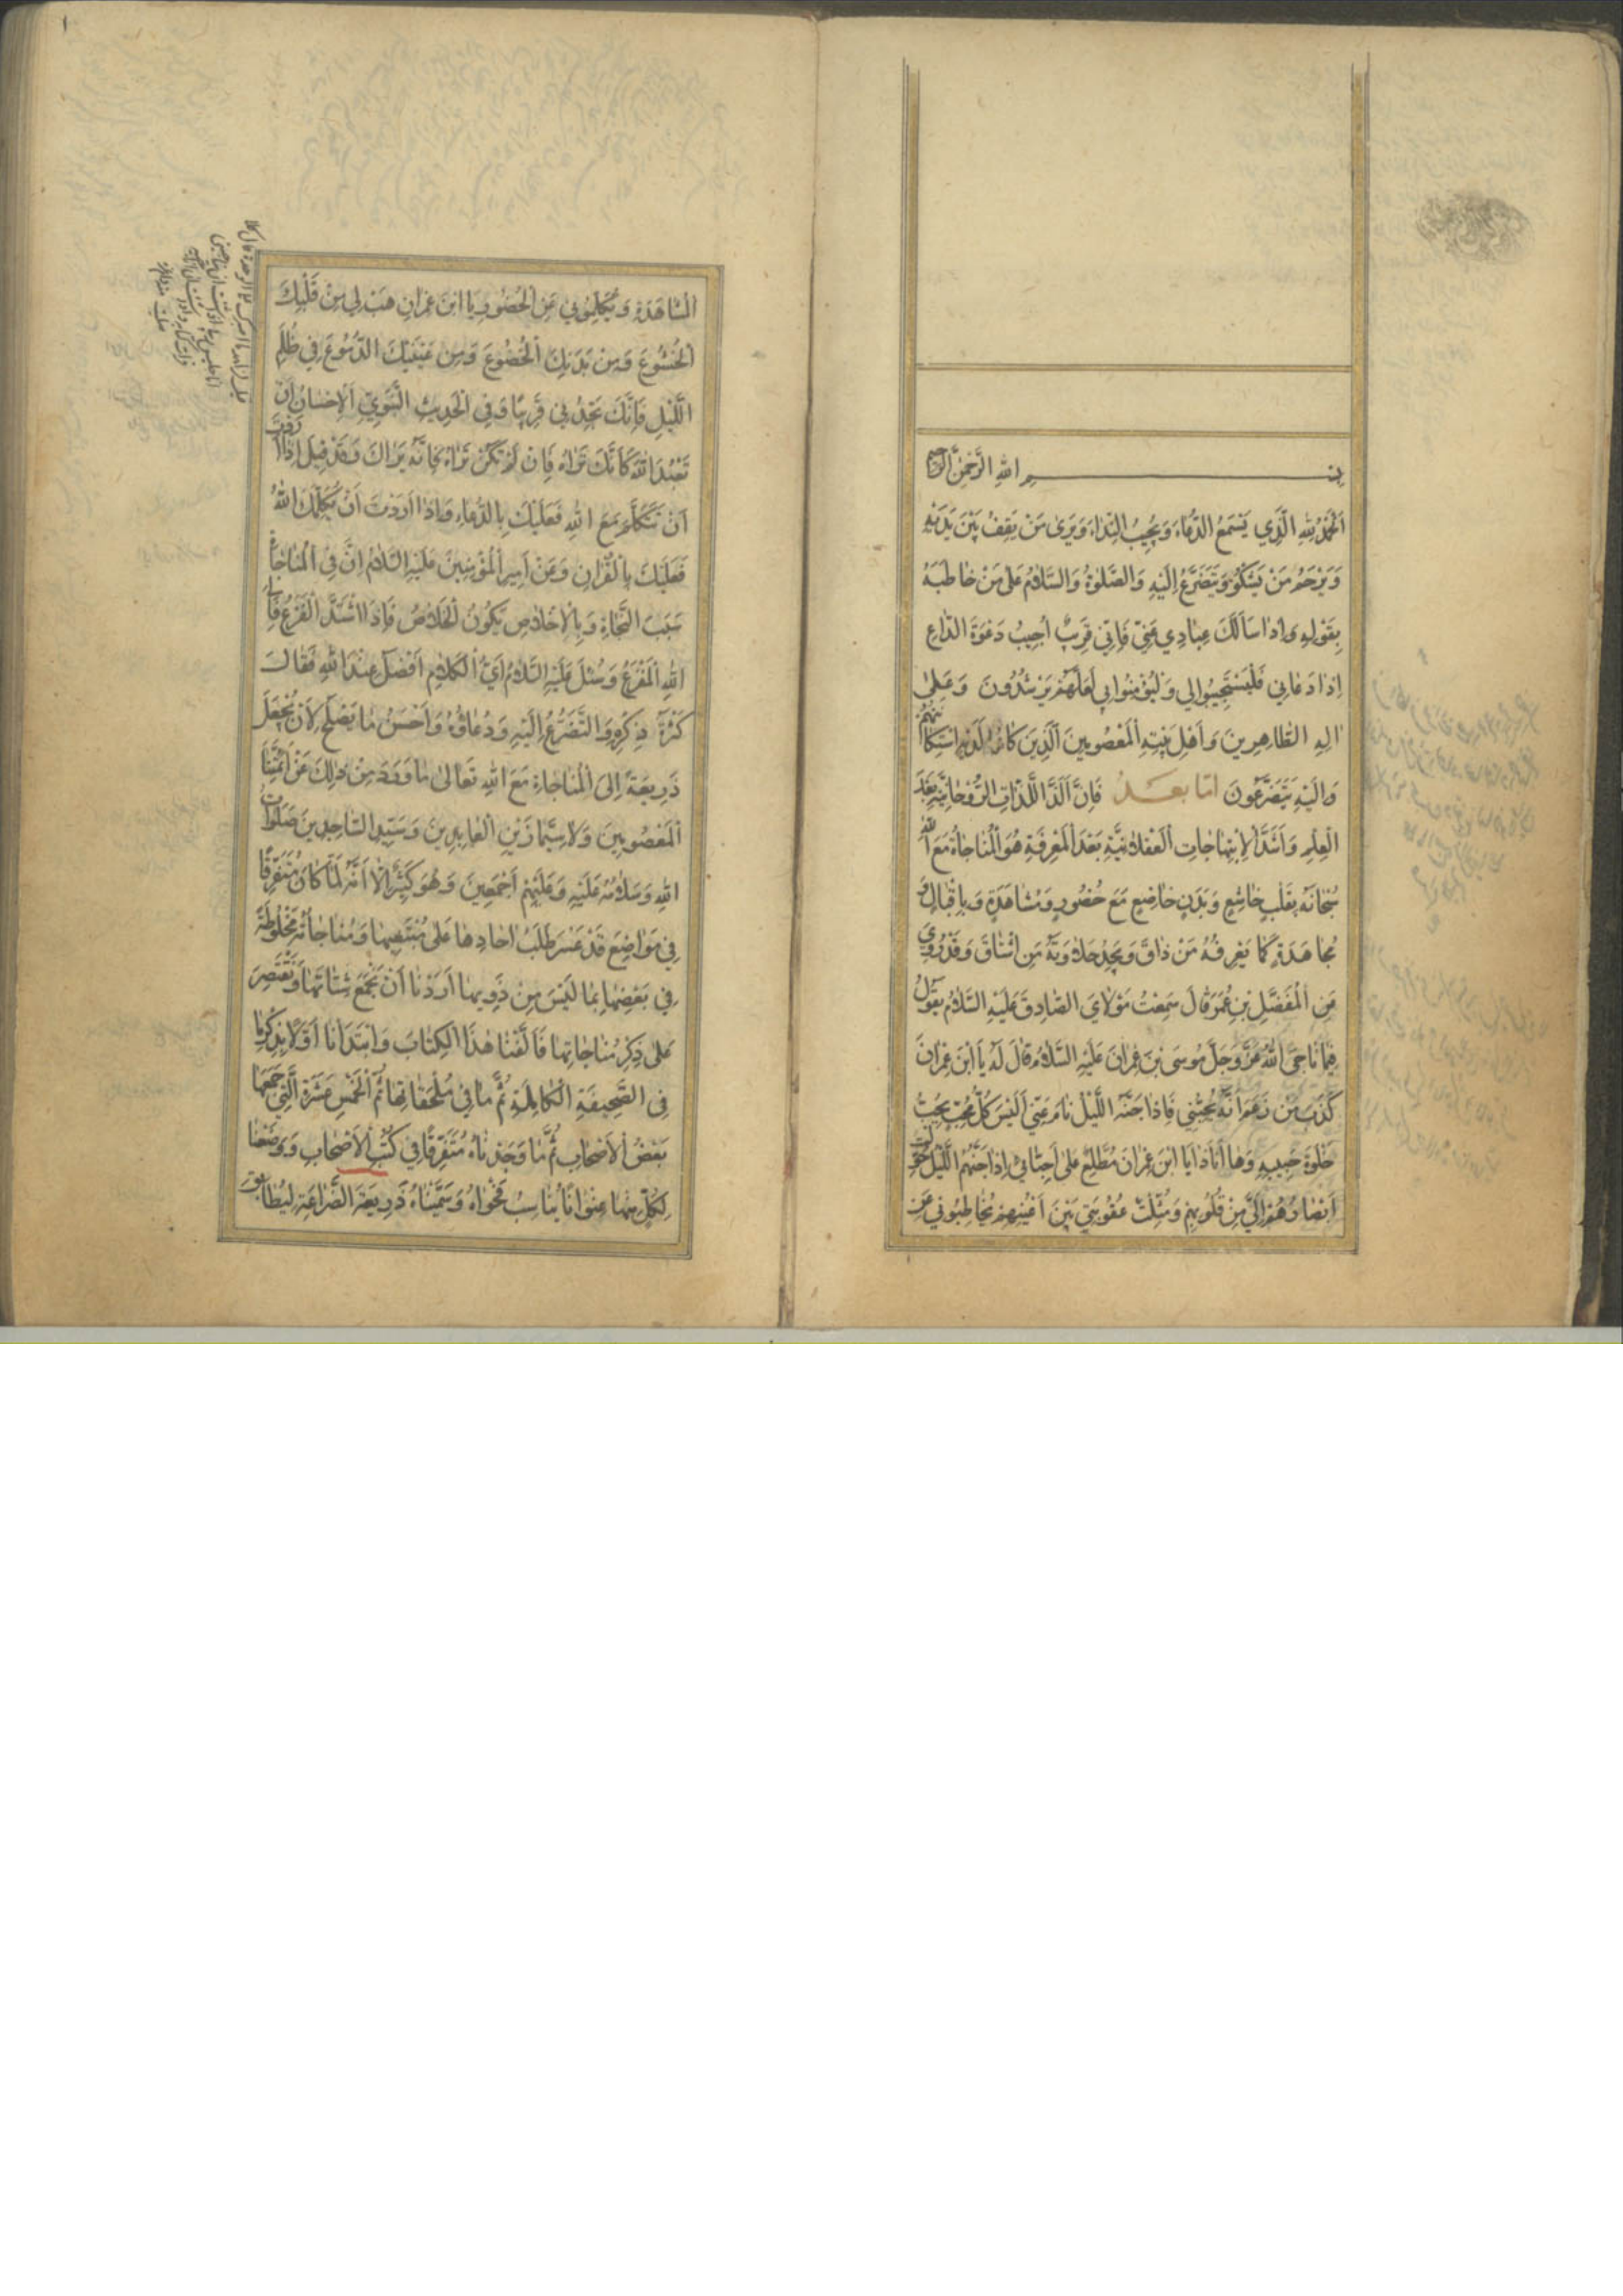 بسم الله الرحمن الرحيم
اَلْحَمْدُ لِلّهِ الَّذِي يَسْمَعُ الدُّعَاءَ وَيُجِيبُ النِّدَاءَ وَيَرَى مَنْ يَقِفُ بَيْنَ يَدَيْهِ
وَيَرْحَمُ مَنْ يَشْكُوُ وَيَتَضَرَّعُ إِلَيْهِ وَالصَّلٰوةُ وَالسَّلَامُ عَلٰى مَنْ خَاطَبَهُ
بِقَوْلِهِ وَاِذَا سَاَلَكَ عِبَادِي عَنِّي فَاِنِّي قَرِيبٌ اُجِيبُ دَعْوَةَ الدَّاعِ
اِذَا دَعَانِي فَلْيَسْتَجِيبُوا لِي وَلْيُؤْمِنُوا بِي لَعَلَّهُمْ يَرْشُدُونَ وَعَلٰى
اٰلِهِ الطَّاهِرِينَ وَاَهْلِ بَيْتِهِ الْمَعْصُومِينَ الَّذِينَ كَانَ لَدَيْهِ اسْتِكَانَتُهُمْ
وَاِلَيْهِ يَتَضَرَّعُونَ امّا بعــد فَاِنَّ اَلَذَّ اللَّذَّاتِ الرُّوْحَانِيَّةِ بَعْدَ
الْعِلْمِ وَاَشَدَّ الْاِبْتِهَاجَاتِ الْعَقْلَانِيَّةِ بَعْدَ الْمَعْرِفَةِ هُوَ الْمُنَاجَاةُ مَعَ اللهِ
سُبْحَانَهُ بِقَلْبٍ خَاشِعٍ وَبَدَنٍ خَاضِعٍ مَعَ حُضُورٍ وَمُشَاهَدَةٍ وَبِاِقْبَالٍ وَ
مُجَاهَدَةٍ كَمَا يَعْرِفُهُ مَنْ ذَاقَ وَيَجِدُ حَلَاوَتَهُ مَنِ اشْتَاقَ وَقَدْ رُوِيَ
عَنِ الْمُفَضَّلِ بْنِ عُمَرَ قَالَ سَمِعْتُ مَوْلَايَ الصَّادِقَ عَلَيْهِ السَّلَامُ يَقُولُ
فِيمَا نَاجَى اللهُ عَزَّ وَجَلَّ مُوسَى بْنَ عِمْرَانَ عَلَيْهِ السَّلَامُ قَالَ لَهُ يَا ابْنَ عِمْرَانَ
كَذَبَ مَنْ زَعَمَ اَنَّهُ يُحِبُّنِي فَاِذَا جَنَّهُ اللَّيْلُ نَامَ عَنِّي اَلَيْسَ كُلُّ مُحِبٍّ يُحِبُّ
خَلْوَةَ حَبِيبِهِ وَهَا اَنَا ذَا يَا ابْنَ عِمْرَانَ مُطَّلِعٌ عَلٰى اَحِبَّائِي اِذَا جَنَّهُمُ اللَّيْلُ حَوَّلْتُ
اَبْصَارَهُمْ اِلَيَّ مِنْ قُلُوبِهِمْ وَمَثَّلْتُ عُقُوبَتِي بَيْنَ اَعْيُنِهِمْ يُخَاطِبُونِي عَنِ
الْمُشَاهَدَةِ وَيُكَلِّمُونِي عَنِ الْحُضُورِ يَا ابْنَ عِمْرَانِ هَبْ لِي مِنْ قَلْبِكَ
الْخُشُوعَ وَمِنْ بَدَنِكَ الْخُضُوعَ وَمِنْ عَيْنَيْكَ الدُّمُوعَ فِي ظُلَمِ
اللَّيْلِ فَاِنَّكَ تَجِدُنِي قَرِيبًا وَفِي الْحَدِيثِ النَّبَوِيِّ اَلْاِحْسَانُ اَنْ
تَعْبُدَ اللهَ كَاَنَّكَ تَرَاهُ فَاِنْ لَمْ تَكُنْ تَرَاهُ فَاِنَّهُ يَرَاكَ وَقَدْ قِيلَ اِذَا اَرَدْتَ
اَنْ تَتَكَلَّمَ مَعَ اللهِ فَعَلَيْكَ بِالدُّعَاءِ وَاِذَا اَرَدْتَ اَنْ يُكَلِّمَكَ اللهُ
فَعَلَيْكَ بِالْقُرْاٰنِ وَعَنْ اَمِيرِ الْمُؤْمِنِينَ عَلَيْهِ السَّلَامُ اِنَّ فِي الْمُنَاجَاةِ
سَبَبَ النَّجَاةِ وَبِالْاِخْلَاصِ يَكُونُ الْخَلَاصُ فَاِذَا اشْتَدَّ الْفَزَعُ فَاِلَى
اللهِ الْمَفْزَعُ وَسُئِلَ عَلَيْهِ السَّلَامُ اَيُّ الْكَلَامِ اَفْضَلُ عِنْدَ اللهِ فَقَالَ
كَثْرَةُ ذِكْرِهِ وَالتَّضَرُّعُ اِلَيْهِ وَدُعَاؤُهُ وَاَحْسَنُ مَا يَصْلَحُ لِاَنْ يُجْعَلَ
ذَرِيعَةً اِلَى الْمُنَاجَاةِ مَعَ اللهِ تَعَالٰى مَا وَرَدَ مِنْ ذٰلِكَ عَنْ اَئِمَّتِنَا
الْمَعْصُومِينَ وَلَا سِيَّمَا زَيْنِ الْعَابِدِينَ وَسَيِّدِ السَّاجِدِينَ صَلَوَاتُ
اللهِ وَسَلَامُهُ عَلَيْهِ وَعَلَيْهِمْ اَجْمَعِينَ وَهُوَ كَثِيرٌ اِلَّا اَنَّهُ لَمَّا كَانَ مُتَفَرِّقًا
فِي مَوَاضِعَ قَدْ عَسُرَ طَلَبُ اٰحَادِهَا عَلٰى مُنْتَصِيهَا وَمُنَاجَاتُهُ مَخْلُوطَةً
فِي بَعْضِهَا بِمَا لَيْسَ مِنْ ذَوِيهَا اَرَدْنَا اَنْ نَجْمَعَ شَتَاتَهَا وَنَقْتَصِرَ
عَلٰى ذِكْرِ مُنَاجَاتِهَا فَاَلَّفْنَا هٰذَا الْكِتَابَ وَابْتَدَاْنَا اَوَّلًا بِذِكْرِ مَا
فِي الصَّحِيفَةِ الْكَامِلَةِ ثُمَّ مَا فِي مُلْحَقَاتِهَا ثُمَّ الْخَمْسِ عَشَرَةَ الَّتِي جَمَعَهَا
بَعْضُ الْاَصْحَابِ ثُمَّ مَا وَجَدْنَاهُ مُتَفَرِّقًا فِي كُتُبِ الْاَصْحَابِ وَوَضَعْنَا
لِكُلٍّ مِنْهَا عِنْوَانًا يُنَاسِبُ فَحْوَاهُ وَسَمَّيْنَاهُ ذَرِيعَةَ الضَّرَاعَةِ لِيُطَابِقَ